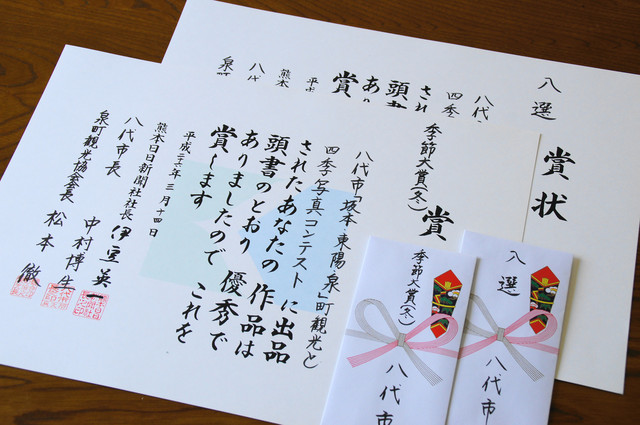 入選
賞状
八代
四季
され
頭書
あり
賞
平成
熊本
八代
泉町
季節大賞(冬)
賞
八代市「坂本・東陽・泉」町観光と
四季写真コンテストに出品
されたあなたの作品は
頭書のとおり優秀で
ありましたのでこれを
賞します
平成二十六年三月十四日
熊本日日新聞社社長 伊豆英一
八代市長 中村博生
泉町観光協会会長 松本徹
季節大賞(冬)
八代市
入選
八代市